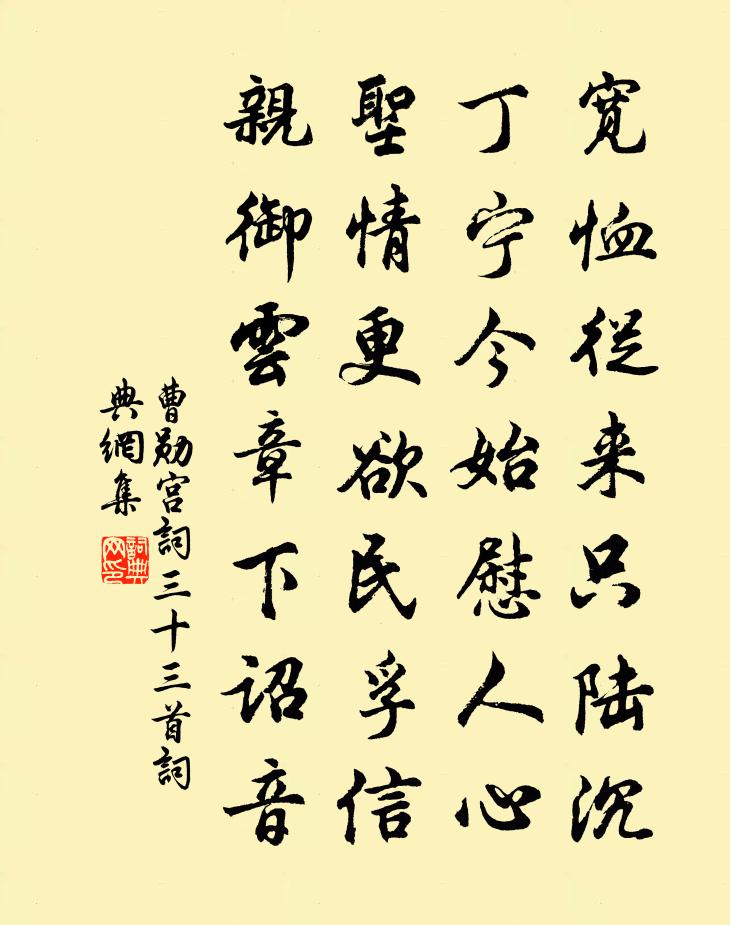 寬恤從来只陆沉
丁宁今始慰人心
聖情更欲民孚信
親御雲章下诏音
曹勋宫詞三十三首詞
典網集
詞典
网印